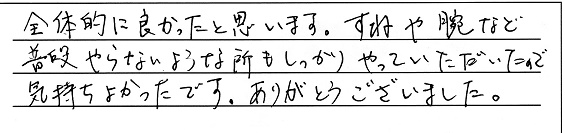 全体的に良かったと思います。すねや腕など
普段やらないような所もしっかりやっていただいたので
気持ちよかったです。ありがとうございました。